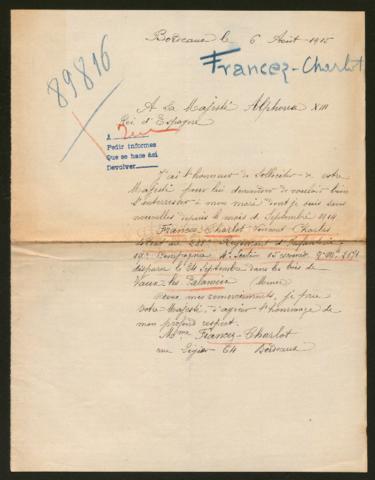 Bordeaux le 6 Août 1915
89816
Francez-Charlot
A Sa Majesté Alphonse XIII
Roi d'Espagne
A
Pedir informes
Que se hace así
Devolver
J'ai l'honneur de solliciter de votre
Majesté pour lui demander de vouloir bien
s'interesser à mon mari dont je suis sans
nouvelles depuis le mois de Septembre 1914
Francez-Charlot Charles
Soldat au Régiment d'Infanterie
19e Compagnie 4e Section 15 escouade
disparu le 24 Septembre dans les bois de
Vaux-les-Palameix (Meuse)
Avec mes remerciements, je prie
votre Majesté, d'agréer l'hommage de
mon profond respect.
Mme Francez-Charlot
rue 24 Bordeaux